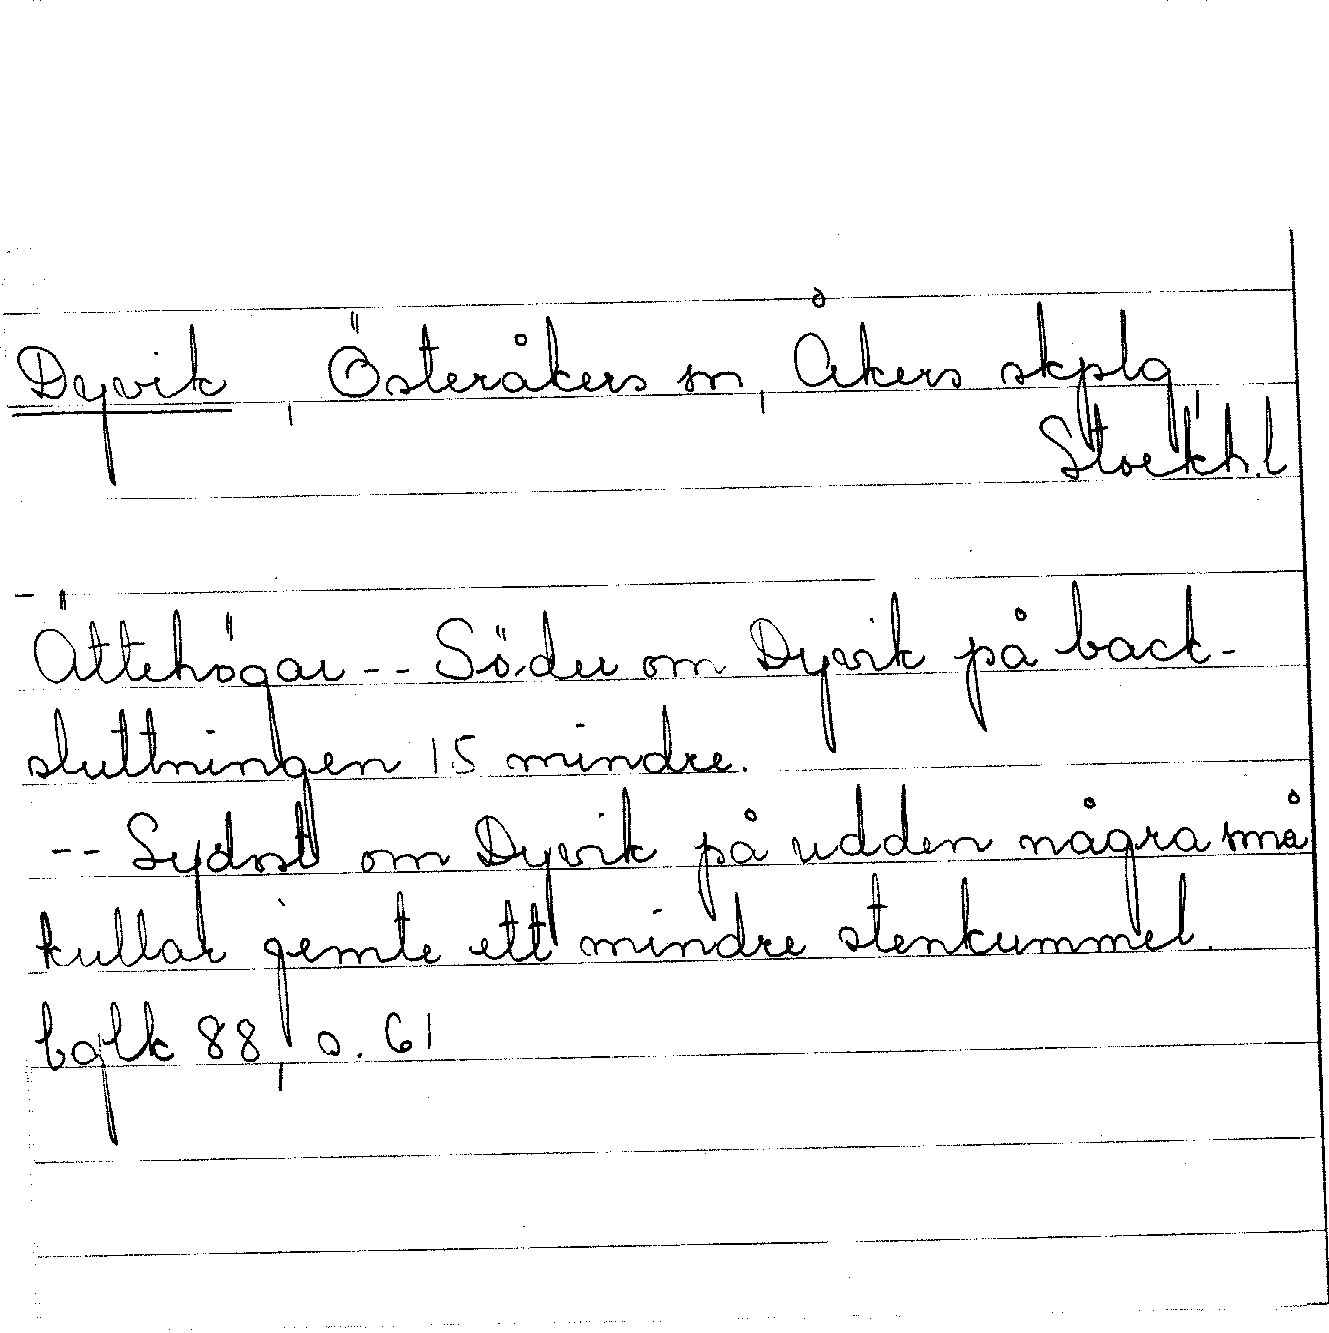 Dyvik, Österåkers sn, Åkers skplg,
Stockh.l
Ättehögar -- Söder om Dyvik på back-
sluttningen 15 mindre.
-- Sydost om Dyvik på udden några små
kullar jemte ett mindre stenkummel.
bglk 88, s. 61